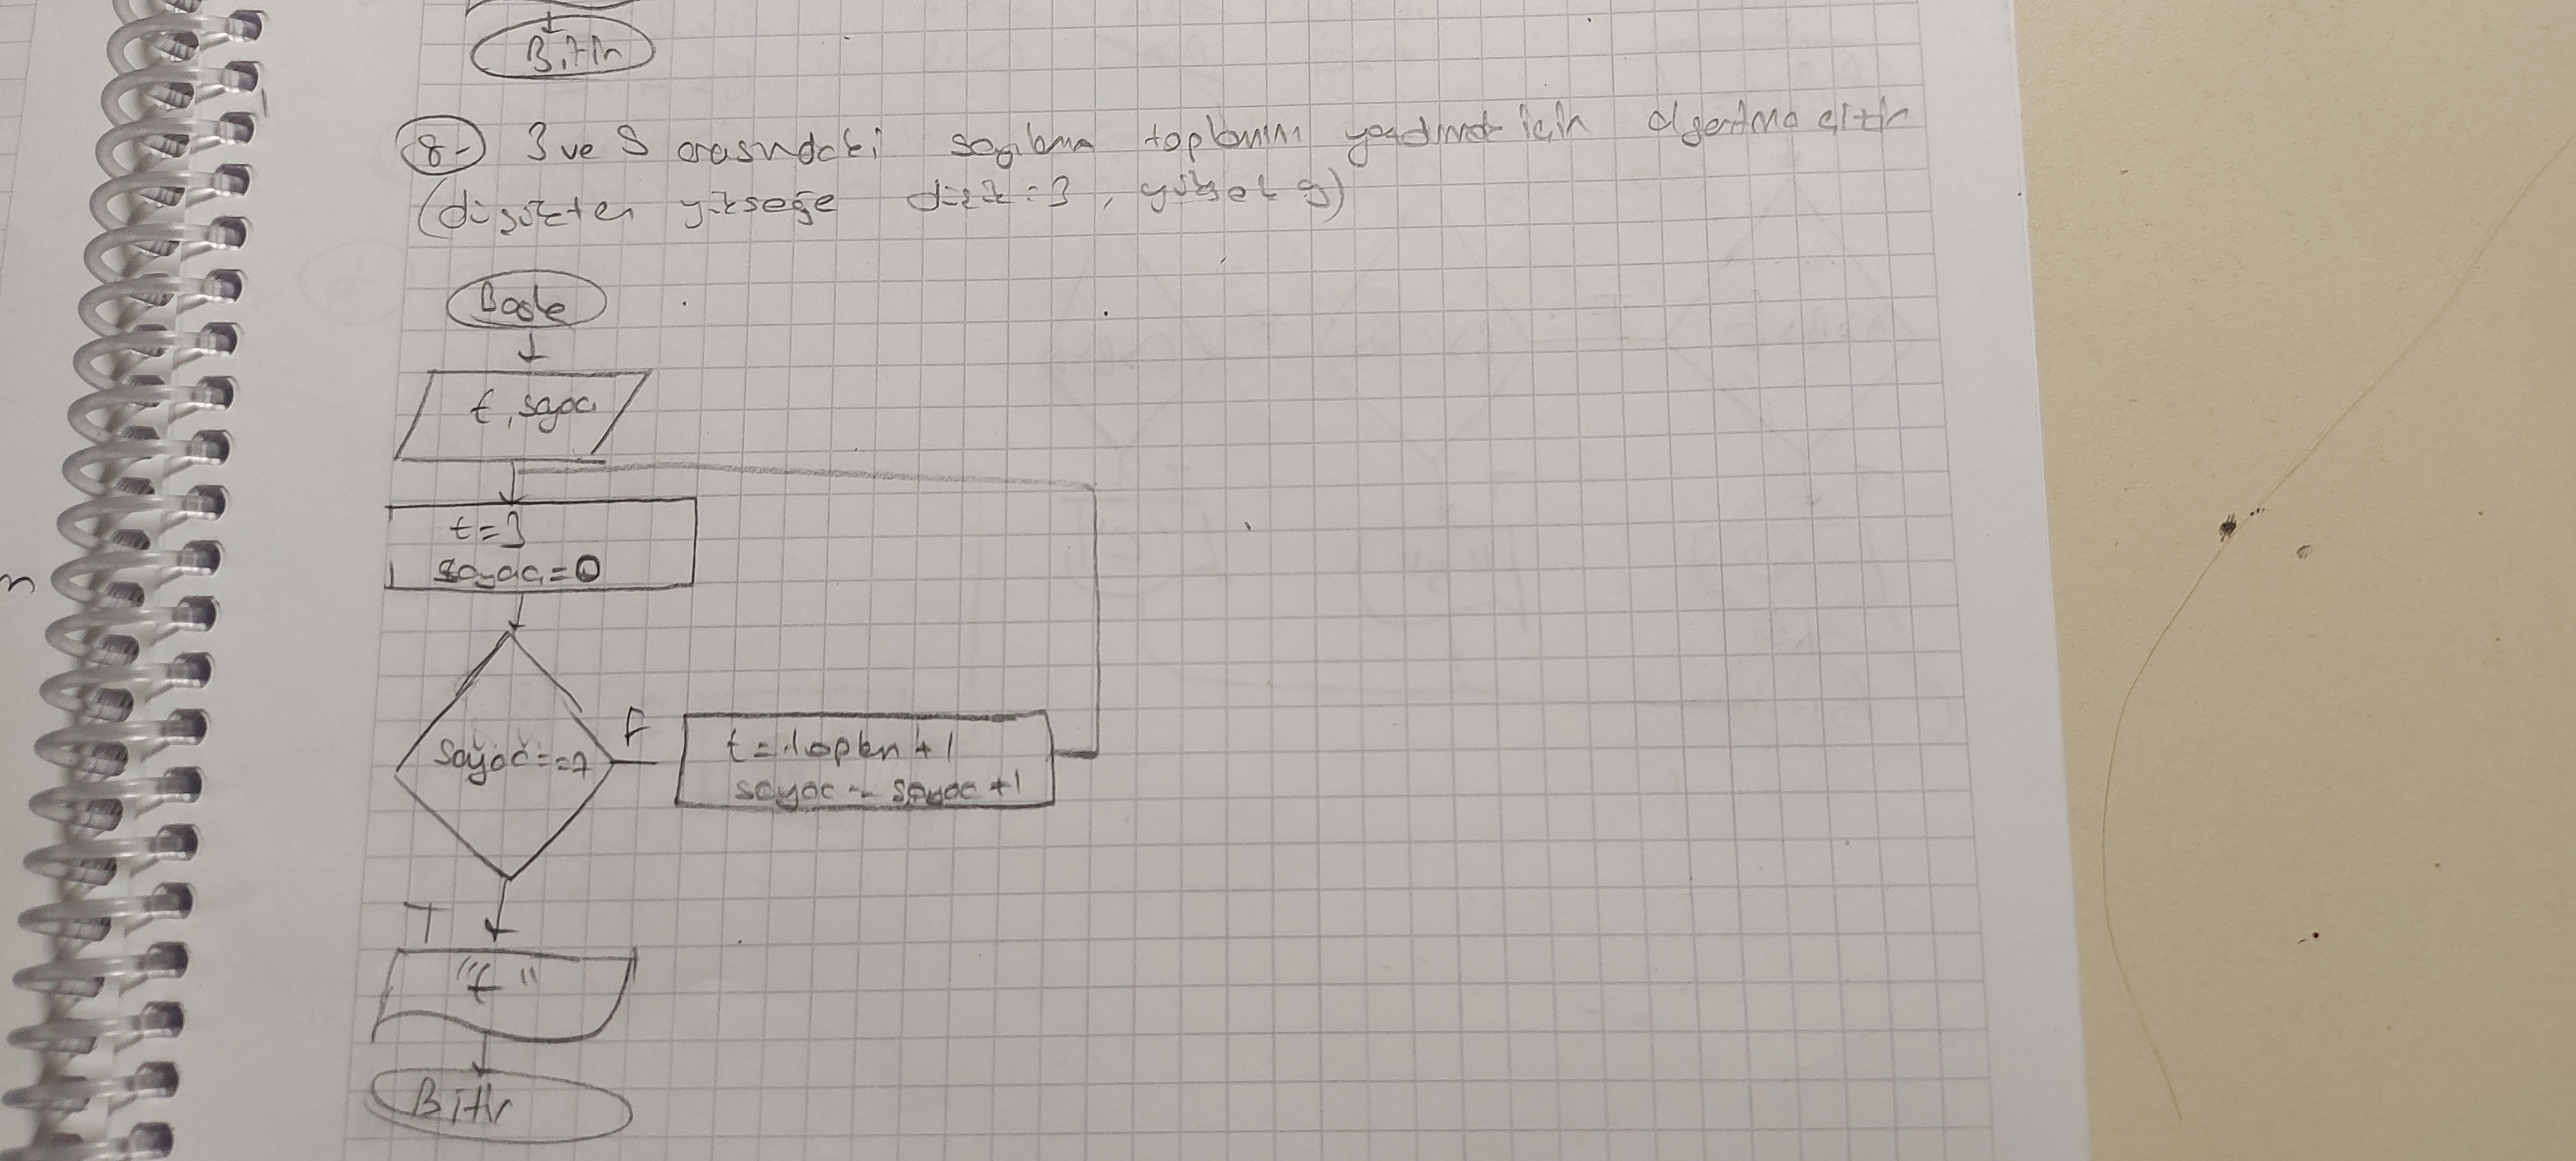 Bitir
8- 3 ve 9 arasındaki sayıların toplamını yazdırmak için algoritma çizin
(düşükten yükseğe düşük = 3, yüksek 9)
Başla
t, sayac
t = 3
sayac = 0
sayac == 7
F
t = toplam + 1
sayac = sayac + 1
T
"t"
Bitir